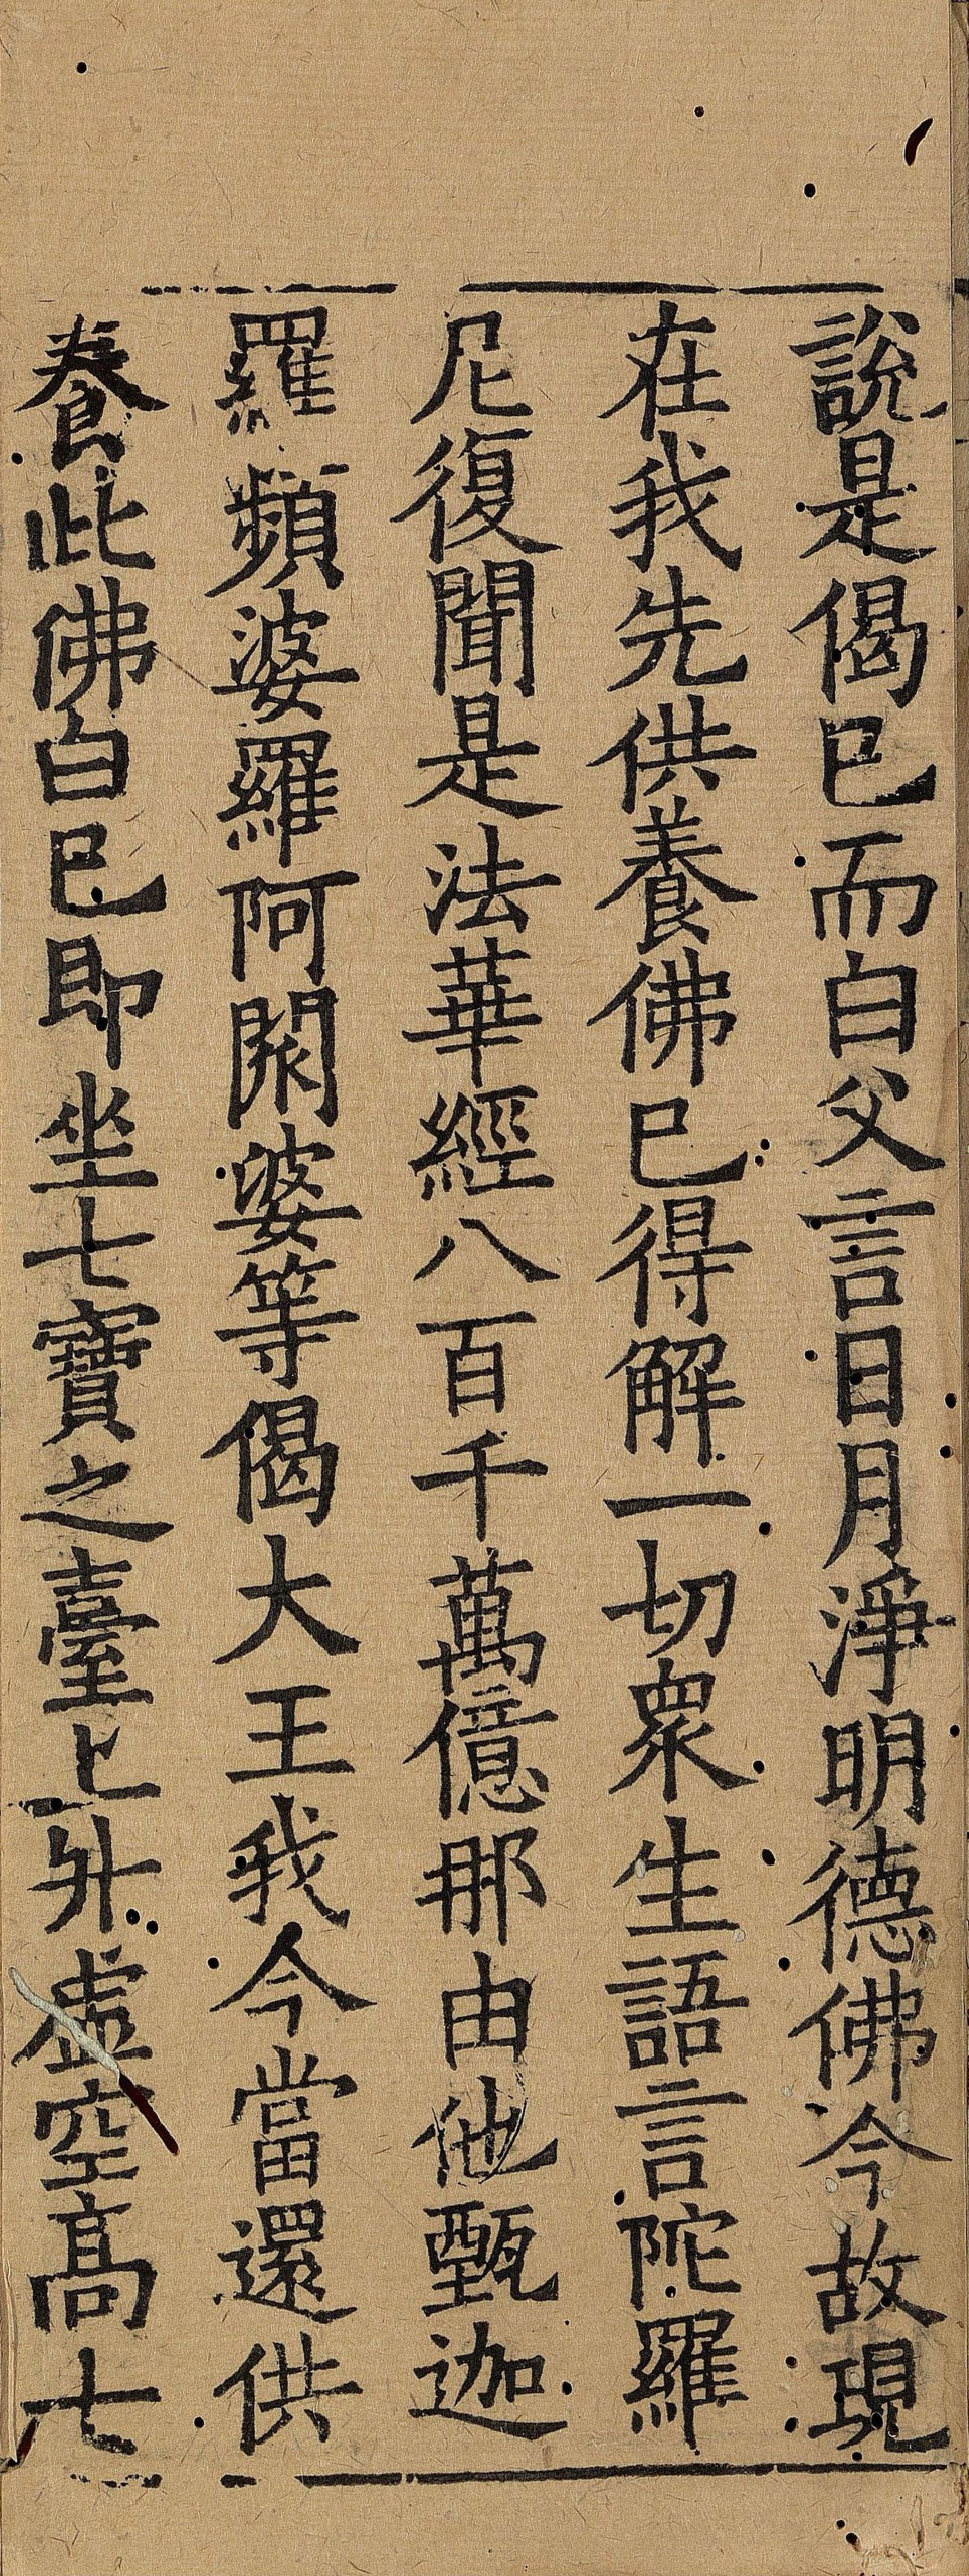 說是偈已而白父言日月淨明德佛今故現
在我先供養佛已得解一切衆生語言陀羅
尼復聞是法華經八百千萬億那由他甄迦
羅頻婆羅阿閦婆等偈大王我今當還供
養此佛白已即坐七寶之臺上升虛空高七